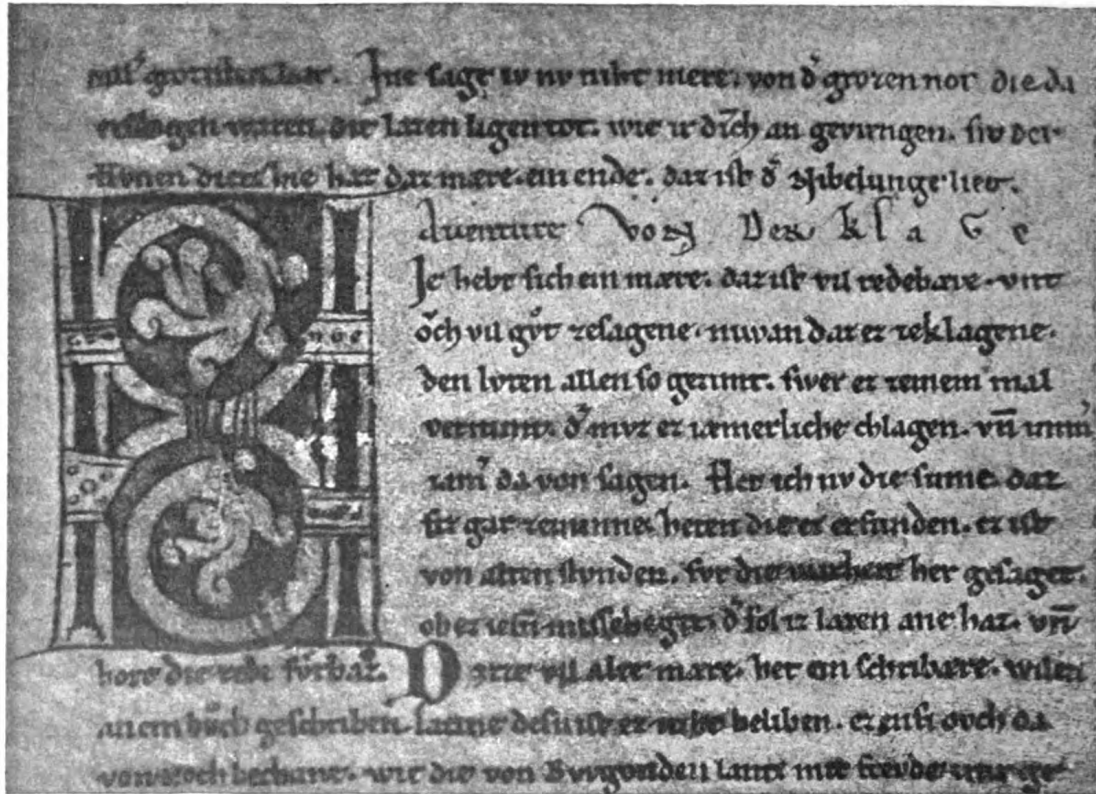 Ine sage iv nv niht mere. von d᾽ grozen not die da
ligen tot. wie ir dich an geviengen. siv der
hivnen diet. hie hat daz mære. ein ende. daz ist d᾽ Nibelunge liet.
Auenture von Der klage
Ie hebt sich ein mære. daz ist vil redebære. vnt
och vil gvt zesagene. nuwan daz ez zeklagene.
den lvten allen so gezimt. swer ez zeinem mal
vernimt. d᾽ mvz ez iæmerliche chlagen. vn̄
iam᾽ da von sagen. Het ich nv die sinne daz
si gar zeminne. heten die ez erfunden. ez ist
von alten stvnden. fvr die her gesaget.
ob ez d᾽ sol iz lazen ane haz. vn̄
hore die rede fvrbaz. Ditze vil alte mære. het ein schribære. wilen
an ein bvch geschriben. latine desn ist ez niht beliben. ez ensi ovch da
von noch bechant. wie die von Bvrgonden lant mit frevde